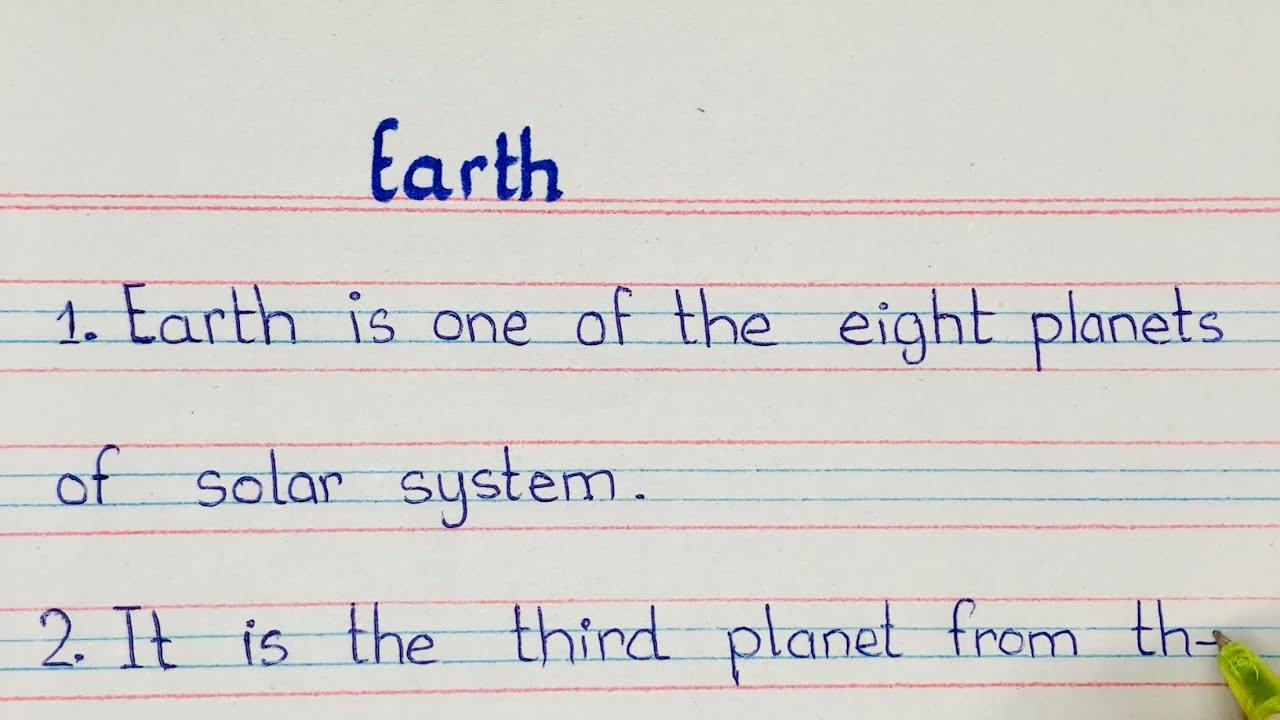 Earth
1. Earth is one of the eight planets
of solar system.
2. It is the third planet from th